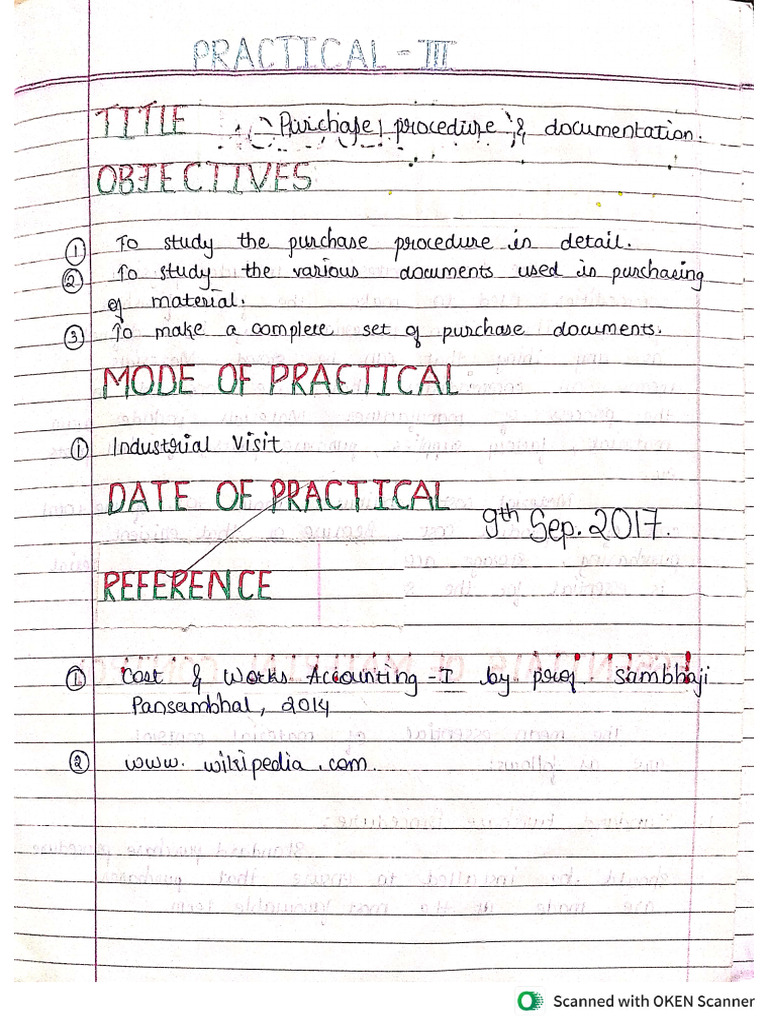 PRACTICAL - III
TITLE Purchase, procedure & documentation.
OBJECTIVES
① To study the purchase procedure in detail.
② To study the various documents used in purchasing
of material.
③ To make a complete set of purchase documents.
MODE OF PRACTICAL
① Industrial Visit
DATE OF PRACTICAL
9th Sep. 2017.
REFERENCE
① Cost & Works Accounting - I by prof Sambhaji
Pansambhal, 2014
② www. wikipedia.com.
Scanned with OKEN Scanner